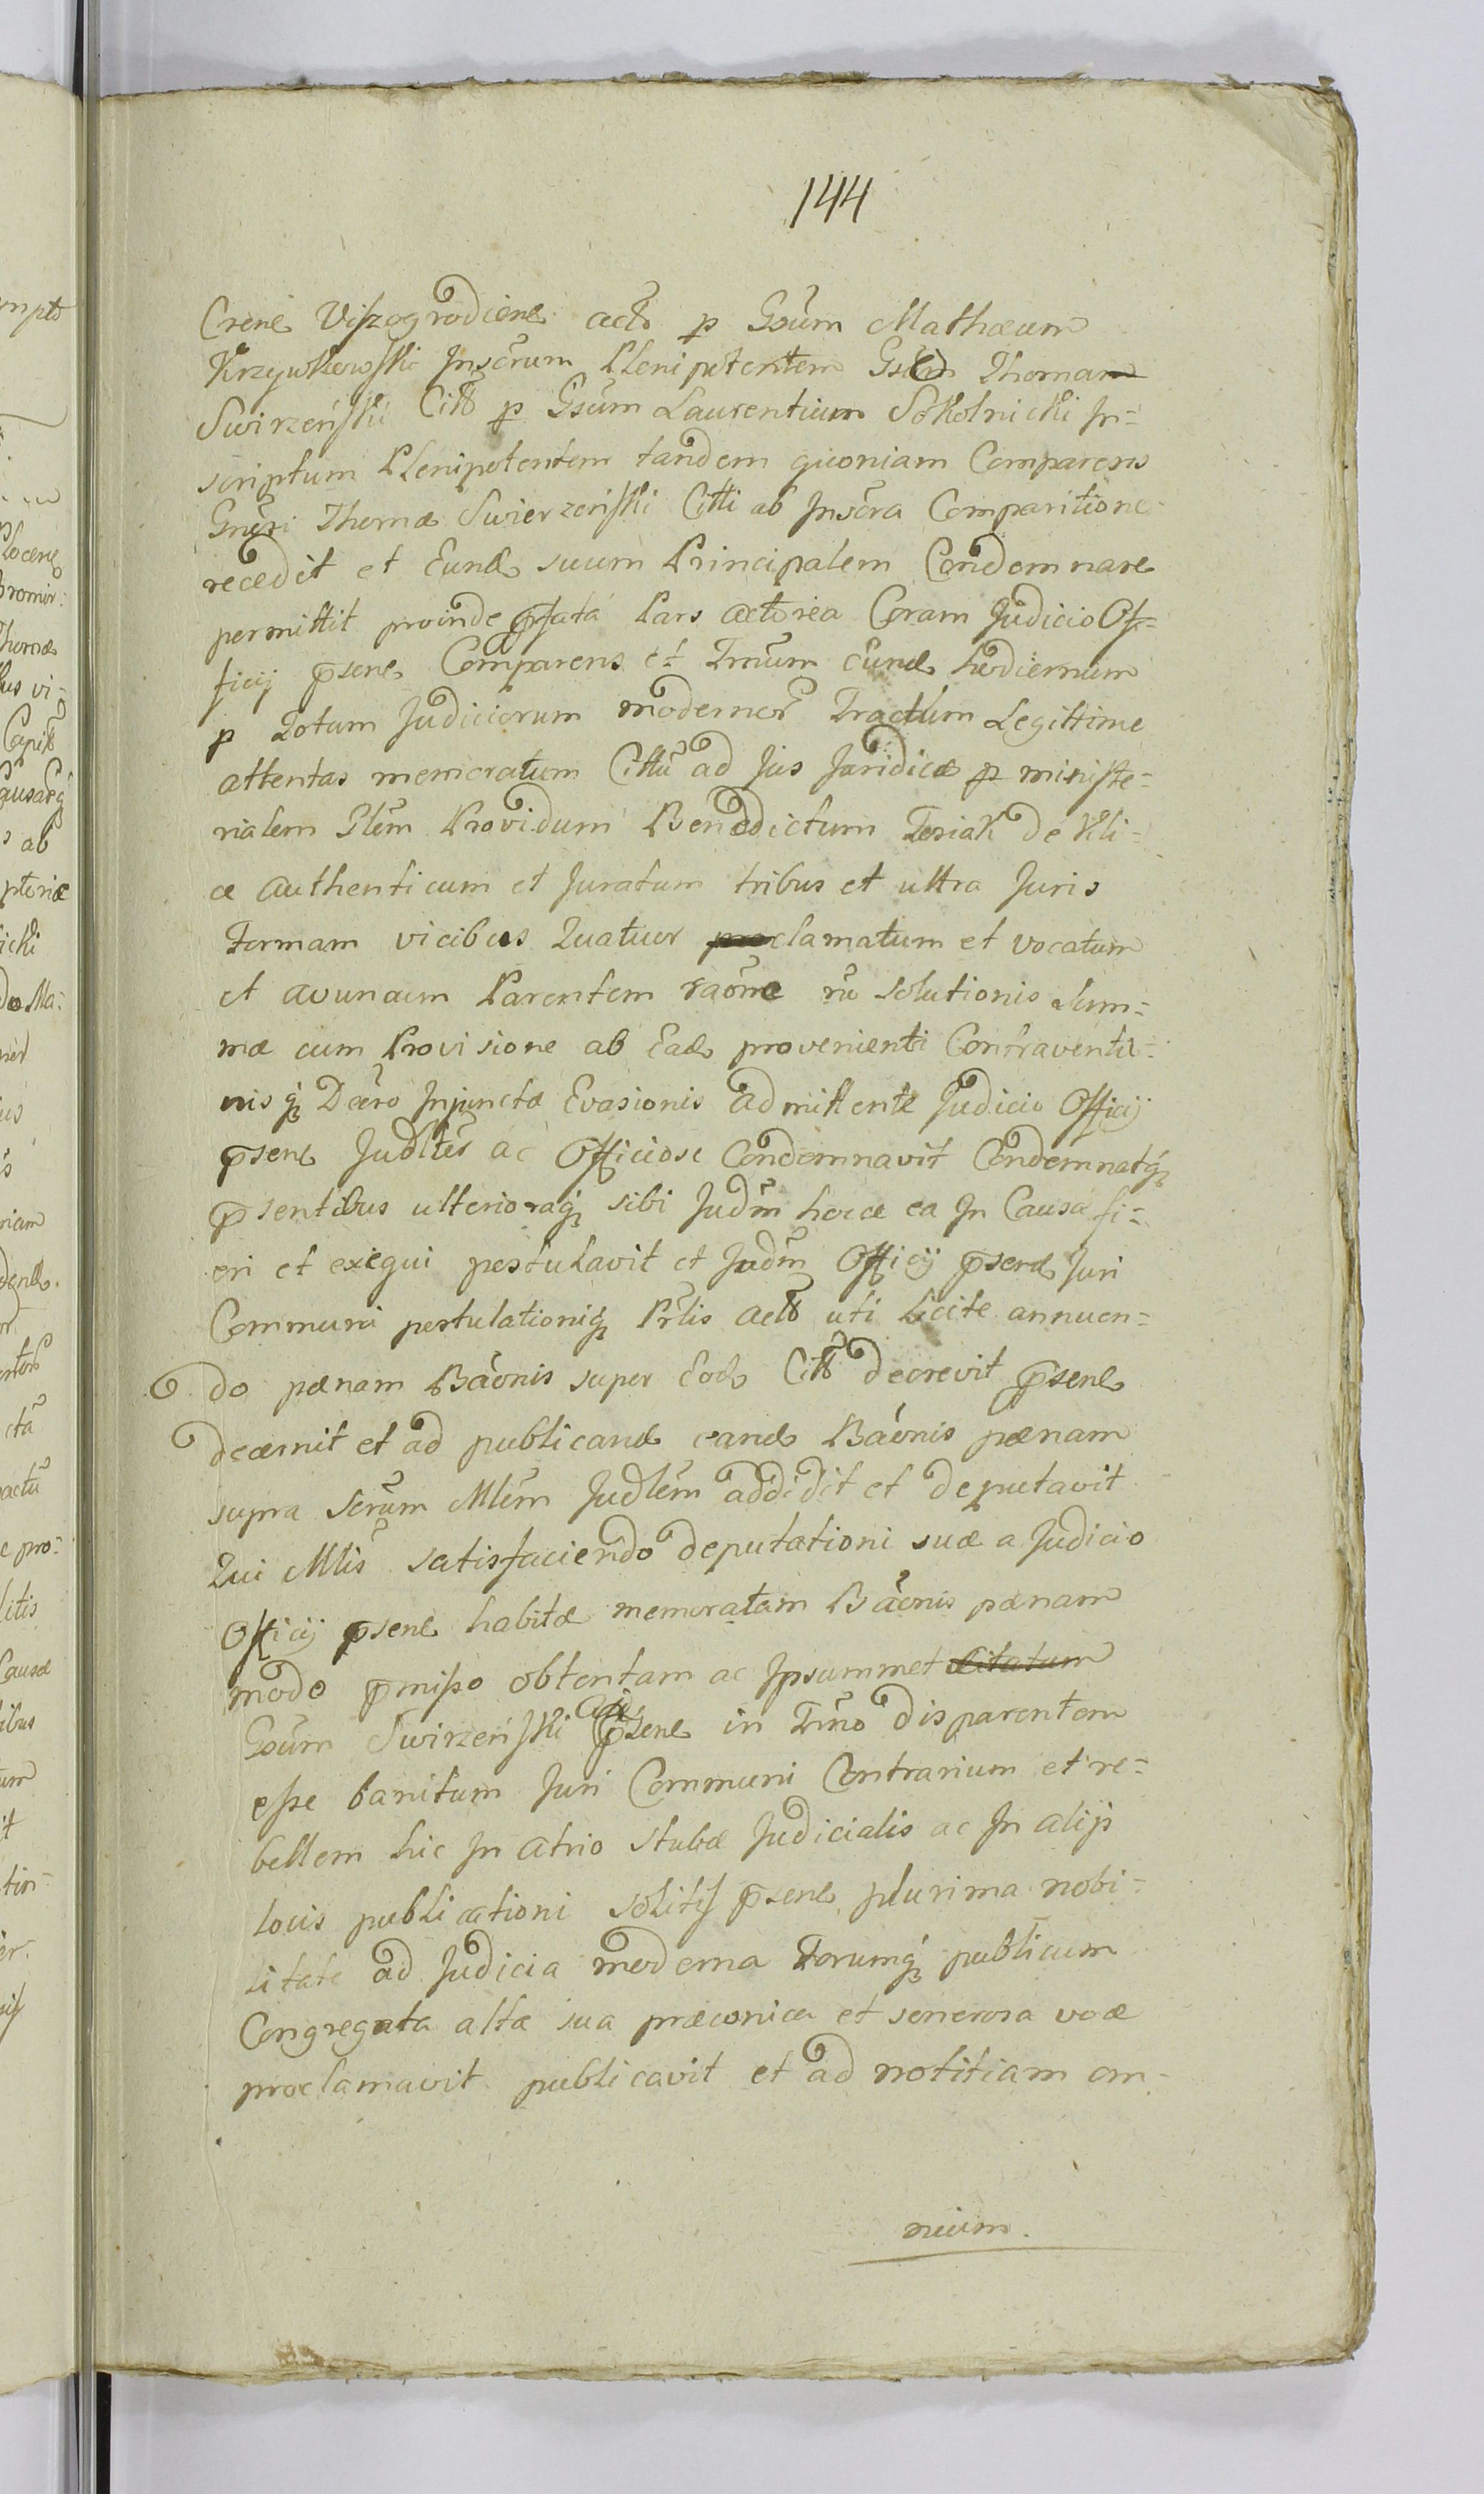 144
Crene Viszogrodiene actô p Gsum Mathæum
Krzywkowski Inscrum Plenipotentem Gsum Thomam
Swirzeński Cittô p Gsum Laurentium Sokolnicki In=
scriptum Plenipotentem tandem quoniam Comparens
Gnĕri Thomæ Swierzeński Citti ab Inscra Comparitione
recedit et Eund suum Principalem Condemnare
permittit proinde pfata Pars Actorea Coram Judicio Of=
ficij psens Comparens et Tmum eund hodiernum
p Totum Judiciorum modernor Tractum Legittime
attentas memoratum Cittū ad Jus Juridice p ministe=
rialem Glem Providum Benedictum Tosiak de Kli=
ce Authenticum et Juratum tribus et ultra Juris
Formam vicibus Quatuor proclamatum et vocatum
et Parentem raõne solutionis Sum=
mæ cum Provisione ab Ead provenienti Contraventio=
nisq Dcero Injunctæ Evasionis admittente Judicio Officij
psens Judlter ac Officiose Condemnavit Condemnatq
psentibus ulterioraq sibi Judm hocce ea In Causa fi=
eri et exequi postulavit et Judm Officij psens Juri
Communi postulationiq Prtis Actô uti licite annuen=
do pænam Bãonis super Eod Cittô decrevit psens
decernit et ad publicand eand Bãonis pænam
supra Scrum Mlem Judlem addidit et deputavit
Qui Mlis satisfaciendo deputationi suæ a Judicio
Officij psens habitæ memoratam Bãonis pænam
modo pmisso obtentam ac Ipsummet citatum
Gsum Swirzeński psens in Tmo disparentem
esse banitum Juri Communi Contrarium et re=
bellem hic In Atrio Stubæ Judicialis ac In alijs
locis publicationi solitis psens plurima nobi=
litate ad Judicia moderna Forumq publicum
Congregata alta sua præconica et sonorosa voce
proclamavit publicavit et ad notitiam om=
nium.